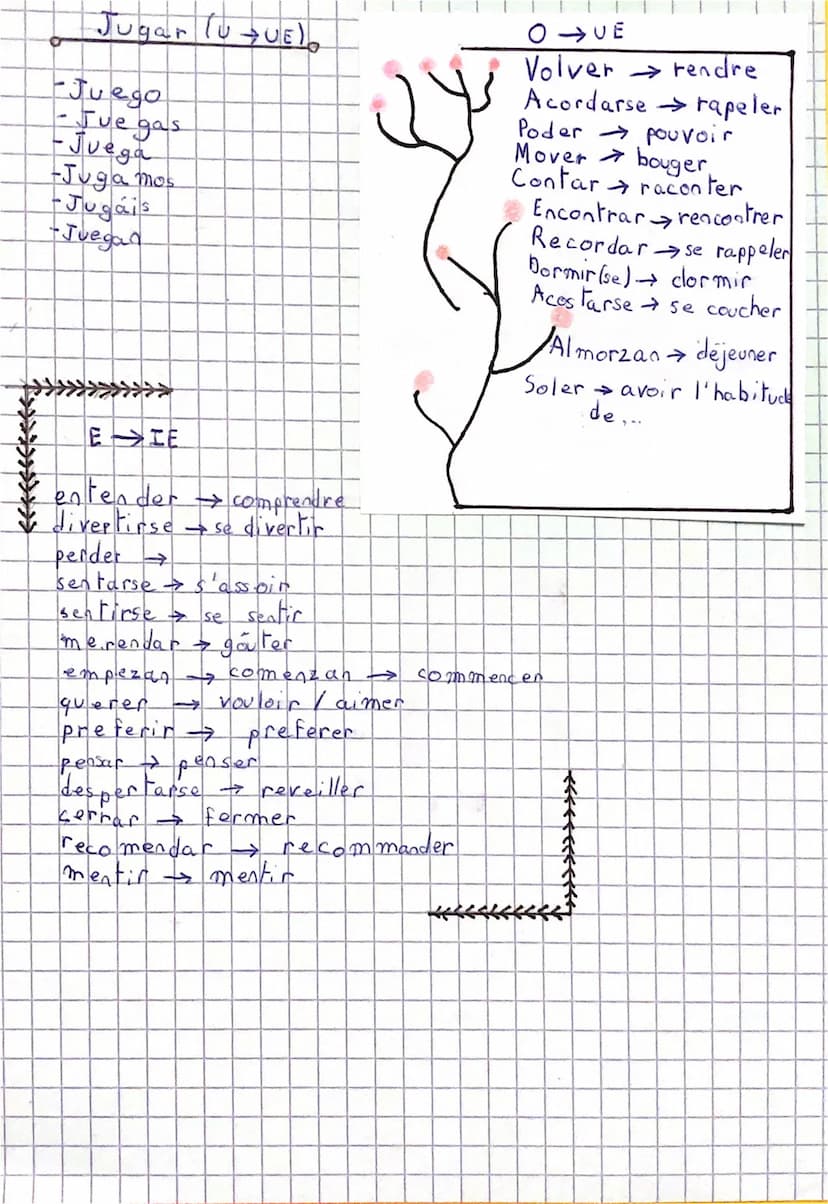 Jugar (U → UE)
- Juego
- Juegas
- Juega
- Jugamos
- Jugáis
- Juegan
O → UE
Volver → rendre
Acordarse → rapeler
Poder → pouvoir
Mover → bouger
Contar → raconter
Encontrar → rencontrer
Recordar → se rappeler
Dormir(se) → dormir
Acostarse → se coucher
Almorzar → déjeuner
Soler → avoir l'habitude
de ...
E → IE
entender → comprendre
divertirse → se divertir
perder →
sentarse → s'assoir
sentirse → se sentir
merendar → goûter
empezar → comenzar → commencer
querer → vouloir / aimer
preferir → preferer
pensar → penser
despertarse → reveiller
cerrar → fermer
recomendar → recommander
mentir → mentir